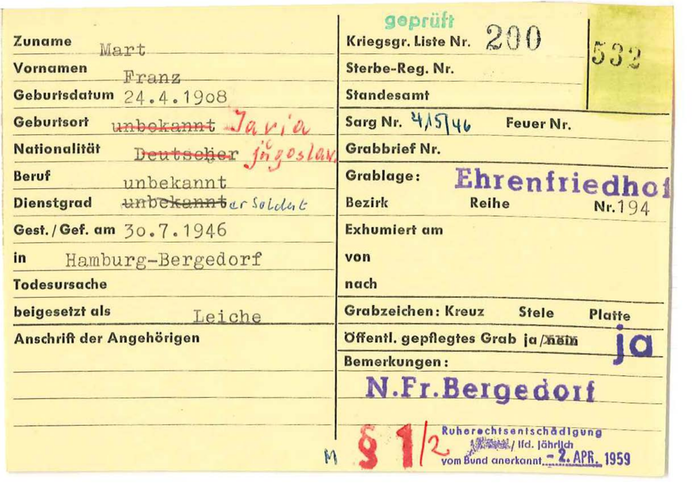 geprüft
Zuname Mart
Vornamen Franz
Geburtsdatum 24.4.1908
Geburtsort unbekannt Javia
Nationalität Deutscher jugoslav.
Beruf unbekannt
Dienstgrad unbekannt er Soldat
Gest./Gef. am 30.7.1946
in Hamburg-Bergedorf
Todesursache
beigesetzt als Leiche
Anschrift der Angehörigen
Kriegsgr. Liste Nr. 200 532
Sterbe-Reg. Nr.
Standesamt
Sarg Nr. 4/5/46 Feuer Nr.
Grabbrief Nr.
Grablage: Ehrenfriedhof
Bezirk Reihe Nr. 194
Exhumiert am
von
nach
Grabzeichen: Kreuz Stele Platte
Öffentl. gepflegtes Grab ja/nein ja
Bemerkungen:
N.Fr.Bergedorf
M § 1/2
Ruherechtsentschädigung
/ lfd. jährlich
vom Bund anerkannt - 2. APR. 1959